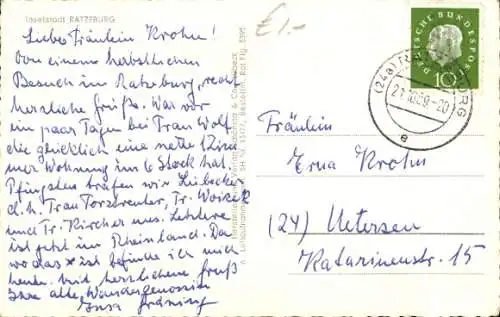 Inselstadt RATZEBURG
Liebes Fräulein Krohn!
Von einem herbstlichen
Besuch in Ratzeburg, recht
herzliche Grüße. War vor
ein paar Tagen bei Frau Wolf
die glücklich eine nette 1 Zim
mer Wohnung im 6 Stock hat.
Pfingsten trafen wir Lübecker
d.h. Frau
und Fr. Kircher uns. Letztere
ist jetzt im Rheinland. Da
wo das x ist befinde ich mich
heute. Mit herzlichem Gruß
Ihre alte Wandergenossin
£1.-
DEUTSCHE BUNDESPOST
10
(24a)
21.10.59-20
a
Fräulein
Erna Krohn
(24) Uetersen
Katarinenstr. 15